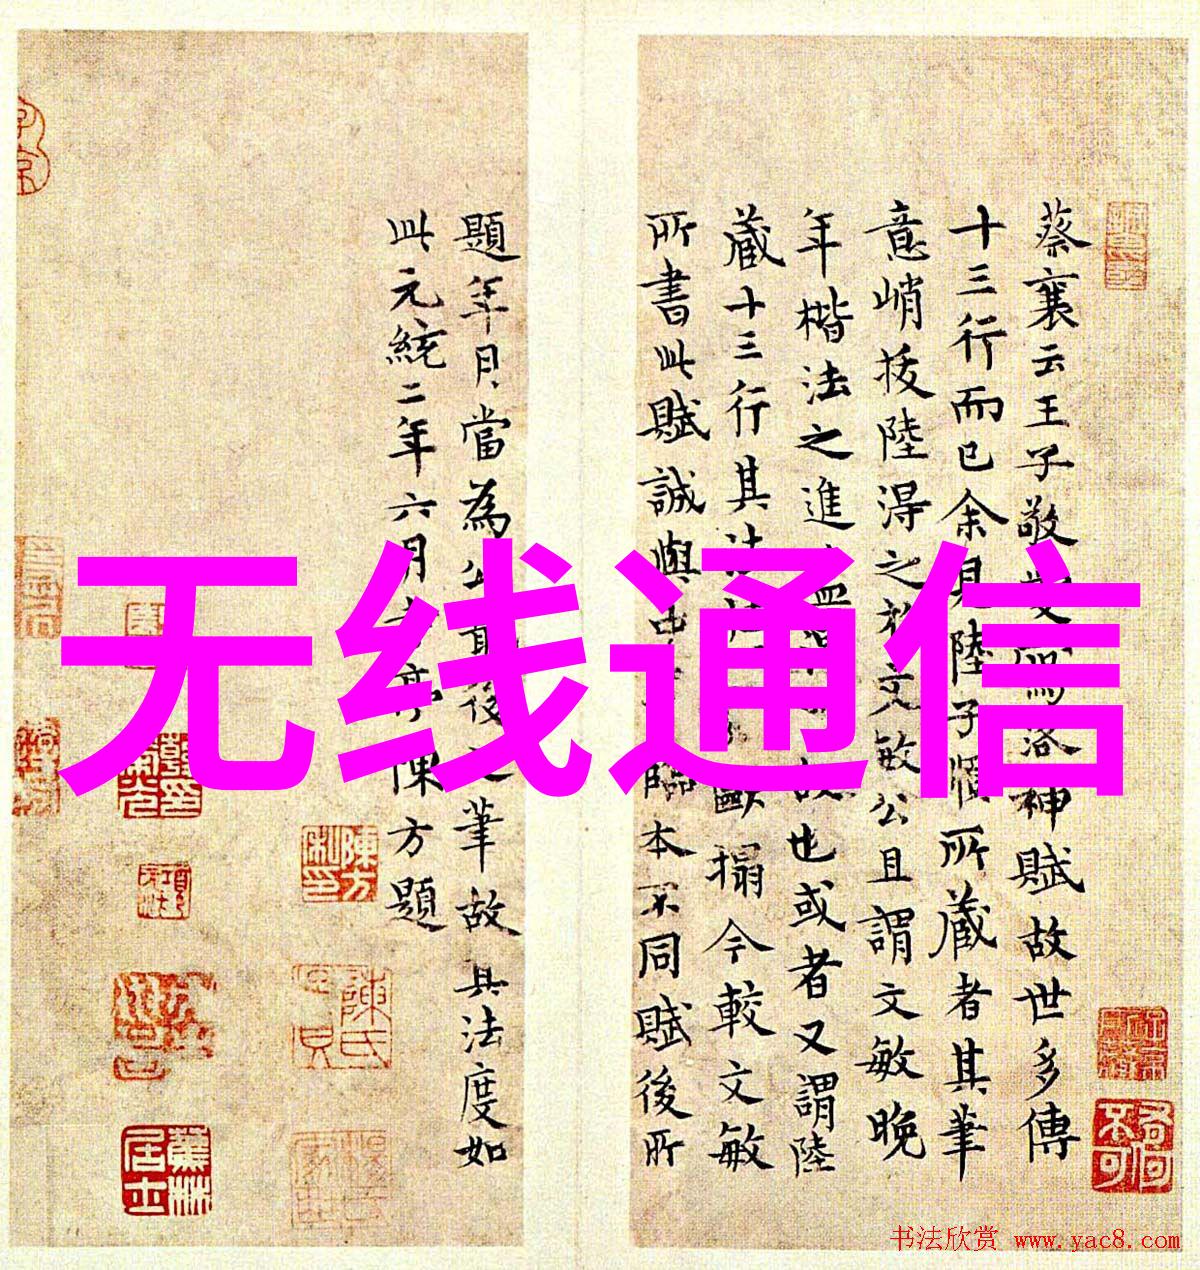 蔡襄云王子敬愛寫洛神賦故世多傳
十三行而已余見陸子順所藏者其筆
意峭拔陸得之於文敏公且謂文敏晚
年楷法之進 也或者又謂陸
藏十三行其法 歐搨今較文敏
所書此賦誠與 臨本不同賦後所
題年月當為公 最後之筆故其法度如
此元統二年六月 陳方題
无线通信
陳方
陳氏
蕉林居士
书法欣赏 www.yac8.com